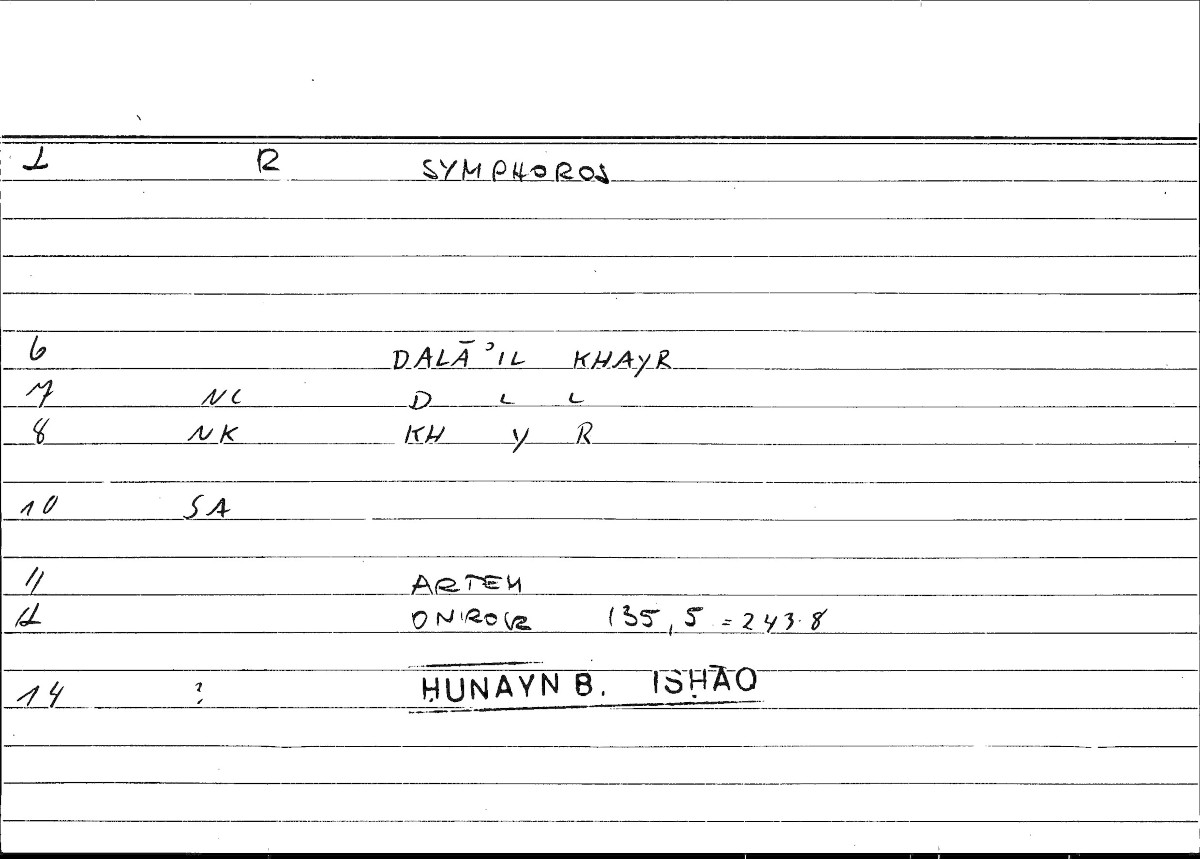 1 R SYMPHOROS
6 DALĀʾIL KHAYR
7 NL D L L
8 NK KH Y R
10 SA
11 ARTEM
12 ONIROKR 135,5 = 243.8
14 ? ḤUNAYN B. ISḤĀQ